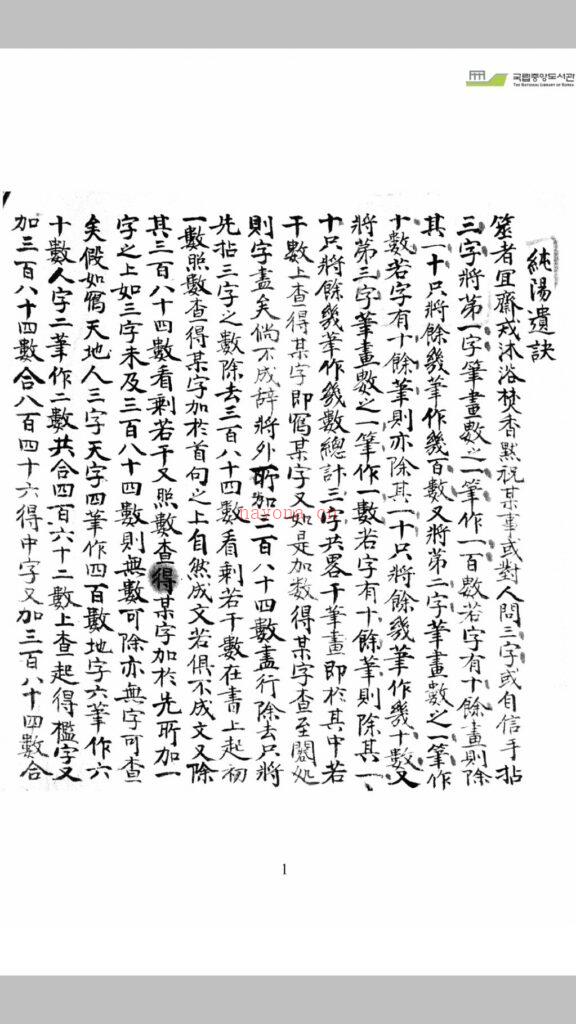 국립중앙도서관
THE NATIONAL LIBRARY OF KOREA
純陽遺訣
筮者宜齋戒沐浴焚香黙祝某事或對人問三字或自信手拈
三字將第一字筆畫數之一筆作一百數若字有十餘畫則除
其一十只將餘幾筆作幾百數又將第二字筆畫數之一筆作
十數若字有十餘筆則亦除其一十只將餘幾筆作幾十數又
將第三字筆畫數之一筆作一數若字有十餘筆則除其一
十只將餘幾筆作幾數總計三字共畧干筆畫即於其中若
干數上查得某字即寫某字又如是加数得某字查至闕処
則字盡矣倘不成辞將外所加三百八十四數盡行除去只將
先拈三字之數除去三百八十四數看剩若干數在書上起初
一數照數查得某字加於首句之上自然成文若俱不成文又除
其三百八十四數看剩若干又照數查得某字加於先所加一
字之上如三字未及三百八十四數則無數可除亦無字可查
矣假如寫天地人三字天字四筆作四百數地字六筆作六
十數人字二筆作二數共合四百六十二數上查起得檻字又
加三百八十四數合八百四十六得中字又加三百八十四數合
nayona.cn
1